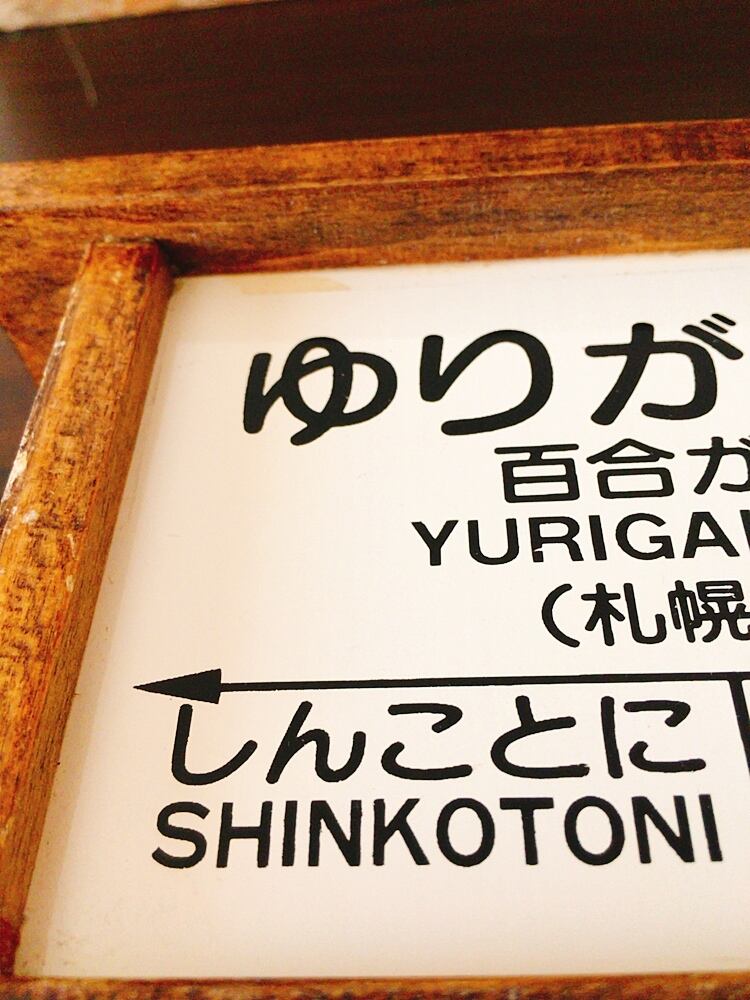 ゆりが
百合が
YURIGA
(札幌
しんことに
SHINKOTONI